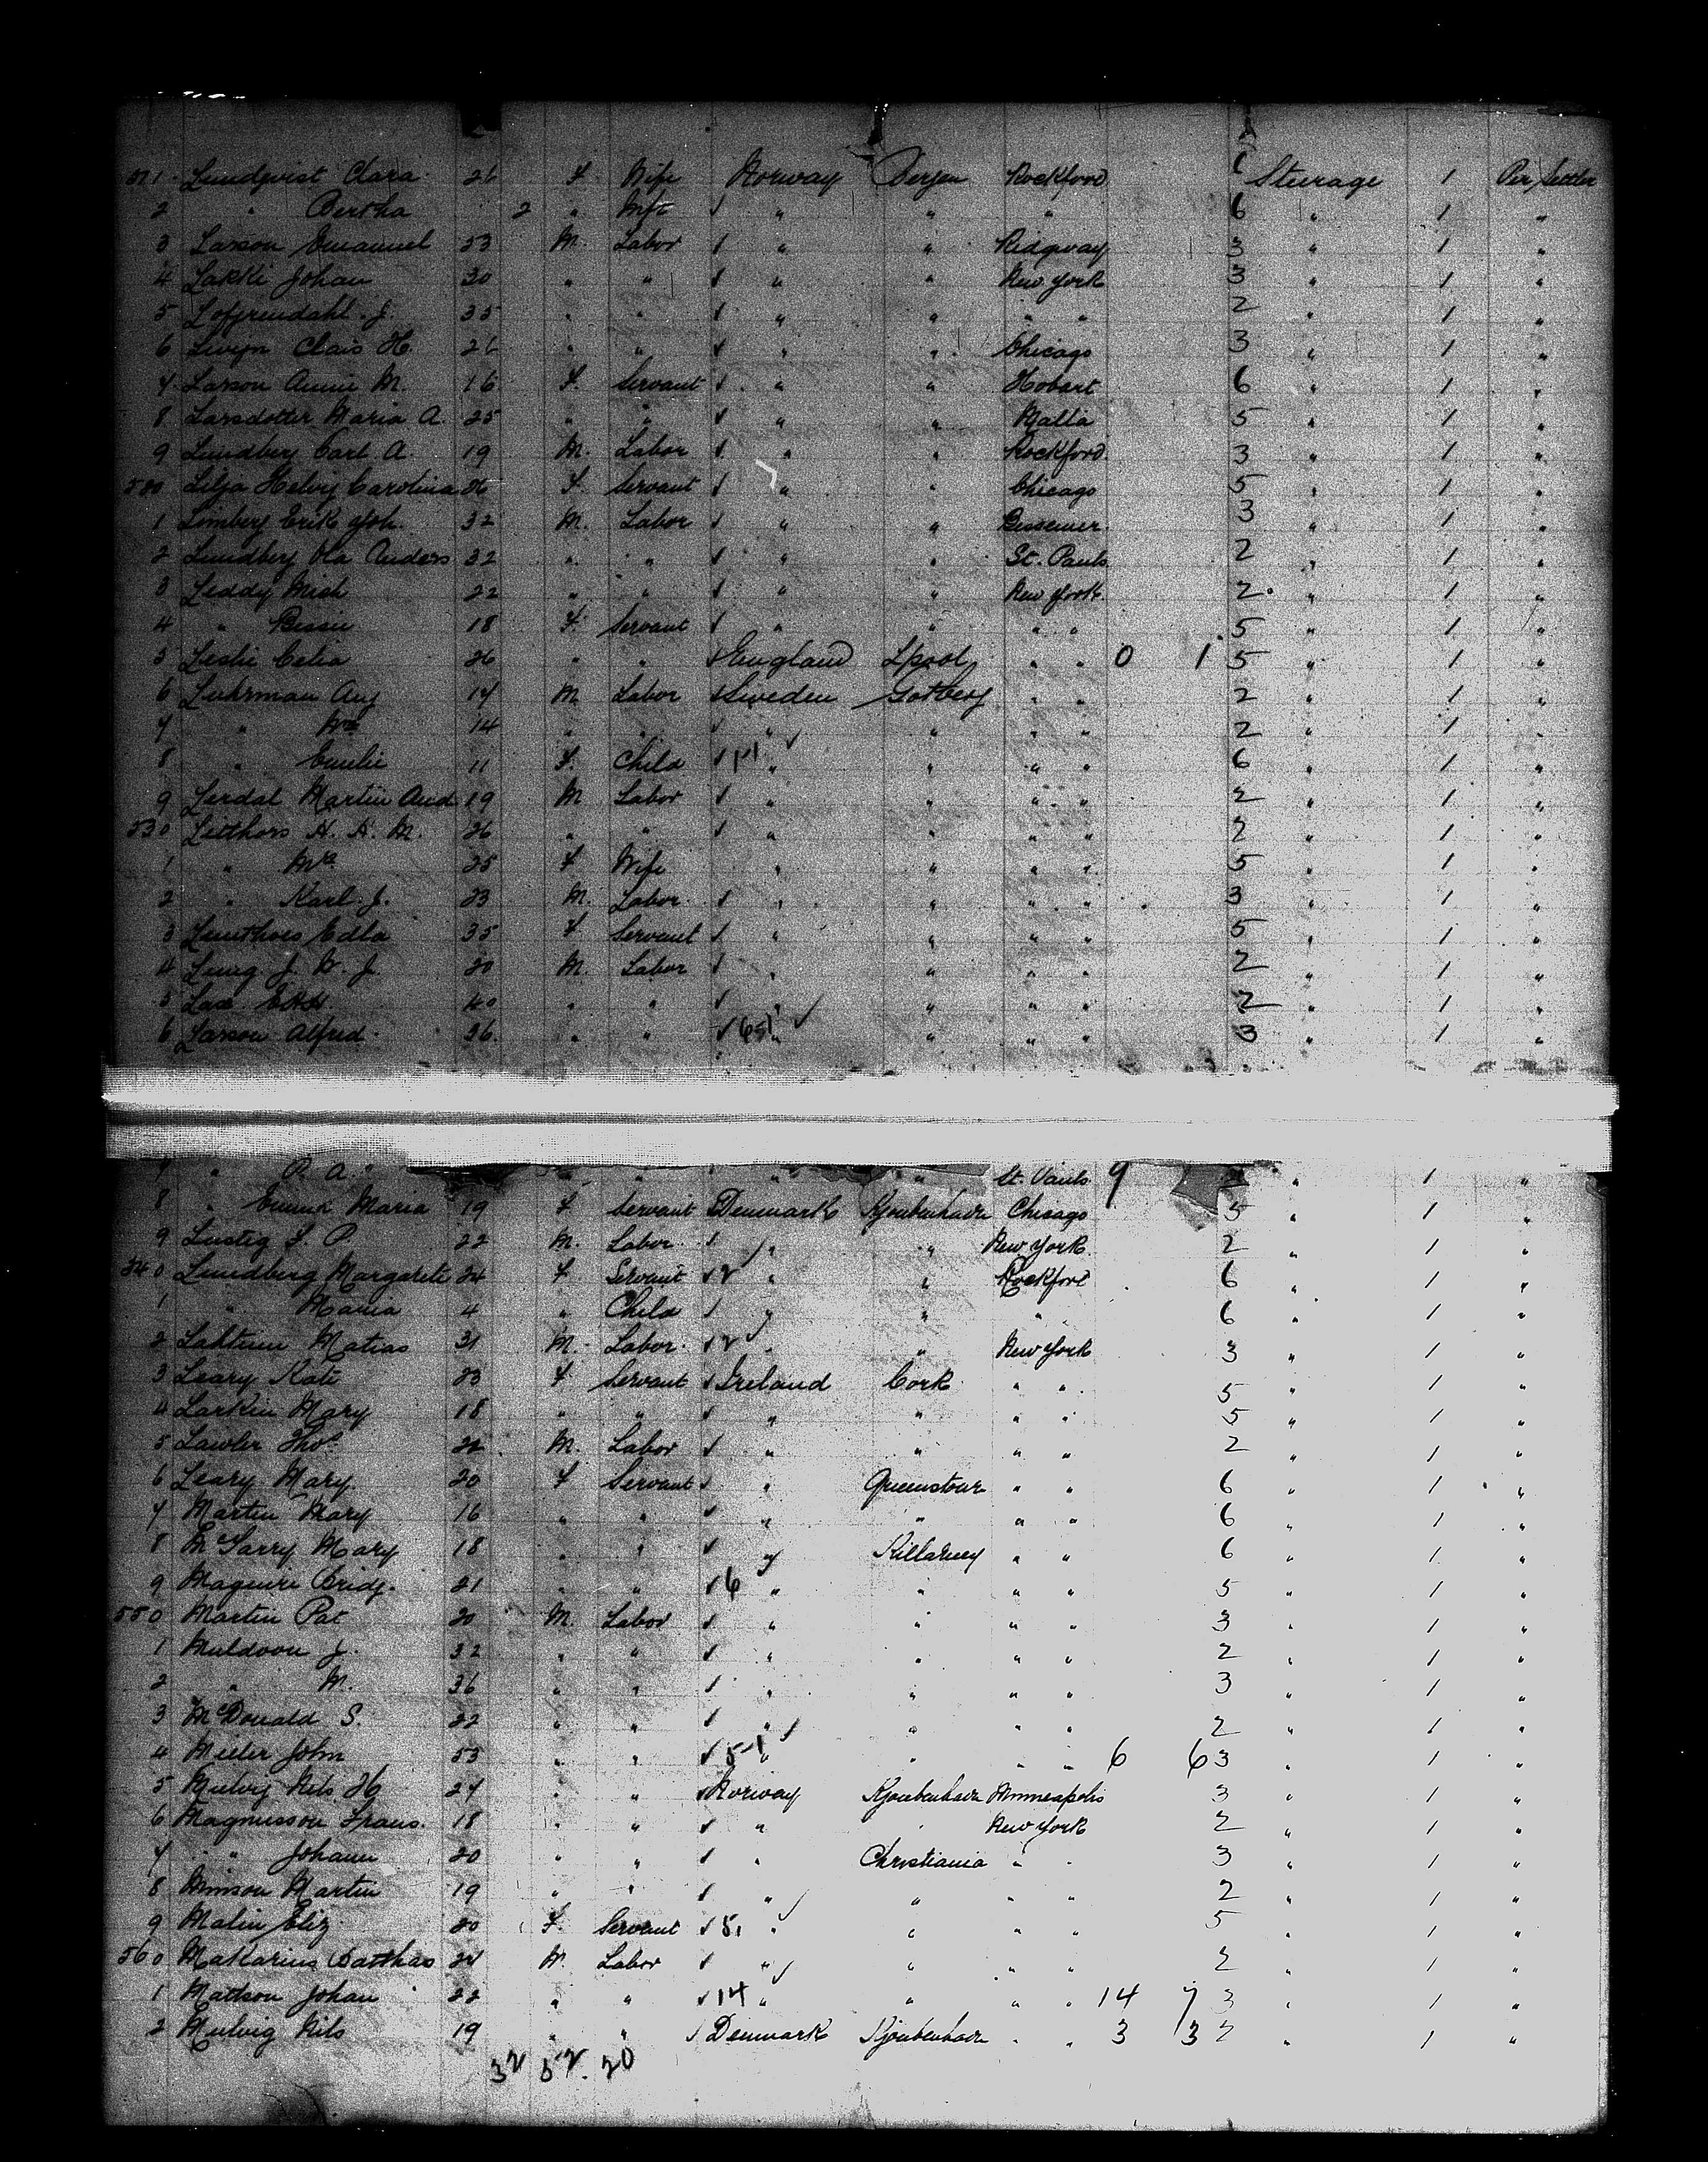 511 Lundqvist Clara 26 F. Wife Norway Bergen Rockford 6 Steerage 1 Per. Settler
2 " Bertha 2 " Inft " " " 6 " 1 "
3 Larson Emanuel 33 M. Labor " " Ridgway 3 " 1 "
4 Lakki Johan 30 " " " " New York 3 " 1 "
5 Lofgrendahl J. 35 " " " " " " 2 " 1 "
6 Clais H. 26 " " " " Chicago 3 " 1 "
7 Larson Annie M. 16 F. Servant " " Hobart 6 " 1 "
8 Larsdotter Maria A. 25 " " " " Malta 5 " 1 "
9 Lundberg Carl A. 19 M. Labor " " Rockford 3 " 1 "
520 Lilja Helvig Carolina 26 F. Servant " " Chicago 5 " 1 "
1 Limberg Erik Joh. 32 M. Labor " " Bessemer 3 " 1 "
2 Lundberg Ola Anders 32 " " " " St. Pauls 2 " 1 "
3 Leddy Mich 22 " " " " New York 2 " 1 "
4 " Bessie 18 F. Servant " " " " 5 " 1 "
5 Leslie Celia 26 " " England Lpool " " 0 1 5 " 1 "
6 Luhrman Aug 17 M Labor Sweden Gotberg " " 2 " 1 "
7 " Wm 14 " " " " " " 2 " 1 "
8 " Emilie 11 F. Child " " " " 6 " 1 "
9 Lerdal Martin And 19 M Labor " " " " 2 " 1 "
530 Litthors A. A. M. 26 " " " " " " 2 " 1 "
1 " Mrs 25 F Wife " " " " 5 " 1 "
2 " Karl J. 23 M. Labor " " " " 3 " 1 "
3 Edla 35 F Servant " " " " 5 " 1 "
4 J. W. J. 20 M. Labor " " " " 2 " 1 "
5 40 " " " " " " 2 " 1 "
6 Larson Alfred 26 " " " " " " 3 " 1 "
7 " P. A. " " " St. Pauls 9 " 1 "
8 " Maria 19 F Servant Denmark Kjoubenhavn Chicago 5 " 1 "
9 Lustig F. P. 22 M. Labor " " New York 2 " 1 "
540 Lundberg Margarete 24 F Servant 2 " " Rockford 6 " 1 "
1 " Mania 4 " Child " " " 6 " 1 "
2 Lahtinen Matias 31 M. Labor 2 " " New York 3 " 1 "
3 Leary Kate 23 F Servant Ireland Cork " " 5 " 1 "
4 Larkin Mary 18 " " " " " " 5 " 1 "
5 Lawler Thos 22 M. Labor " " " " 2 " 1 "
6 Leary Mary 20 F Servant " Queenstown " " 6 " 1 "
7 Martin Mary 16 " " " " " " 6 " 1 "
8 McGarry Mary 18 " " " Killarney " " 6 " 1 "
9 Maguire Bridg. 21 " " 6 " " " " 5 " 1 "
550 Martin Pat 20 M. Labor " " " " 3 " 1 "
1 Muldoon J. 32 " " " " " " 2 " 1 "
2 " M. 36 " " " " " " 3 " 1 "
3 McDonald S. 22 " " " " " " 2 " 1 "
4 John 53 " " 51 " " " " 6 6 3 " 1 "
5 Melvig Nils H 27 " " Norway Kjoubenhavn Minneapolis 3 " 1 "
6 Magnusson Frans. 18 " " " " New York 2 " 1 "
7 " Johann 20 " " " Christiania " " 3 " 1 "
8 Martin 19 " " " " " " 2 " 1 "
9 Malin Eliz 20 F. Servant 51 " " " " 5 " 1 "
560 Makarius 24 M. Labor " " " " 2 " 1 "
1 Mattson Johan 22 " " 14 " " " " 14 7 3 " 1 "
2 Melvig Nils 19 " " Denmark Kjoubenhavn " " 3 3 2 " 1 "
32 52. 20